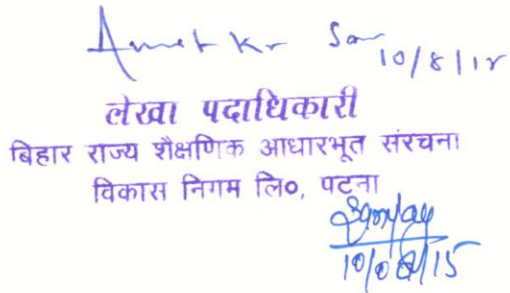 Amit Kr 10/8/15
लेखा पदाधिकारी
बिहार राज्य शैक्षणिक आधारभूत संरचना
विकास निगम लि०, पटना
Sanjay
10/08/15